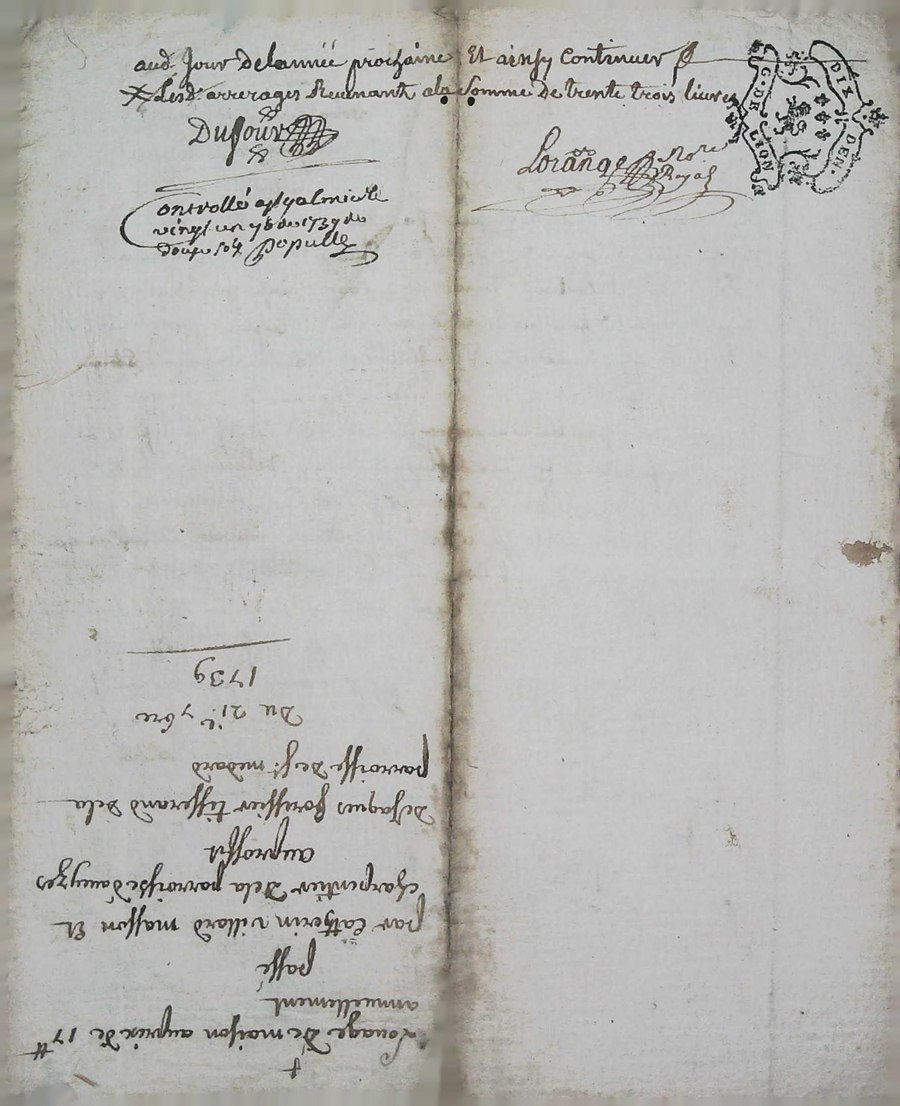 aud. Jour delannée prochaine Et ainsy Continuer
Lesd. arrerages Revenant ala Somme de trente trois livres
Dufour
Lorange Nore
Royal
G. DE MOUL
DIX DEN.
Controllé
vingt un 7bre 1739
douze sols
Louage de maison auprix de 17 ₶
annuellement
passé
par Catherin villard masson Et
charpentier dela parroisse
auproffit
deJaques tisserand dela
parroisse de St. medard
Du 21e. 7bre
1739